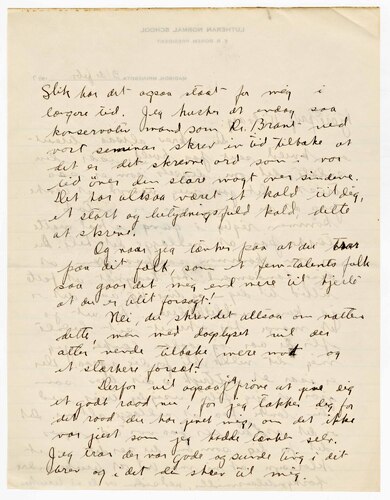 Slik har det ogsaa staat for meg i
længere tid. Jeg husker at endog saa
konservativ mand som Dr. Brant ned
vort seminar skrev en tid tilbake at
det er det skrevne ord som i vor
tid över den store magt over sindene.
Det har altsaa været et kald til deg,
et stort og betydningsfuld kald dette
at skrive.
Og naar jeg tænker paa at du
paa dit folk, som et fem-talents folk
saa gaar det meg end mere til hjerte
at du er litt forsagt!
Nei du skrev det allsaa om natten
dette, men med dagslyset vil der
atter vende tilbake mere mot og
et stærkere forsæt!
Derfor vil ogsaa jeg pröve at give deg
et godt raad nu for jeg takker dig for
det raad du har givet meg, om det ikke
var just som jeg hadde tænkt selv.
Jeg tror der var gode og sunde ting i det
brev og i det du skrev til mig.